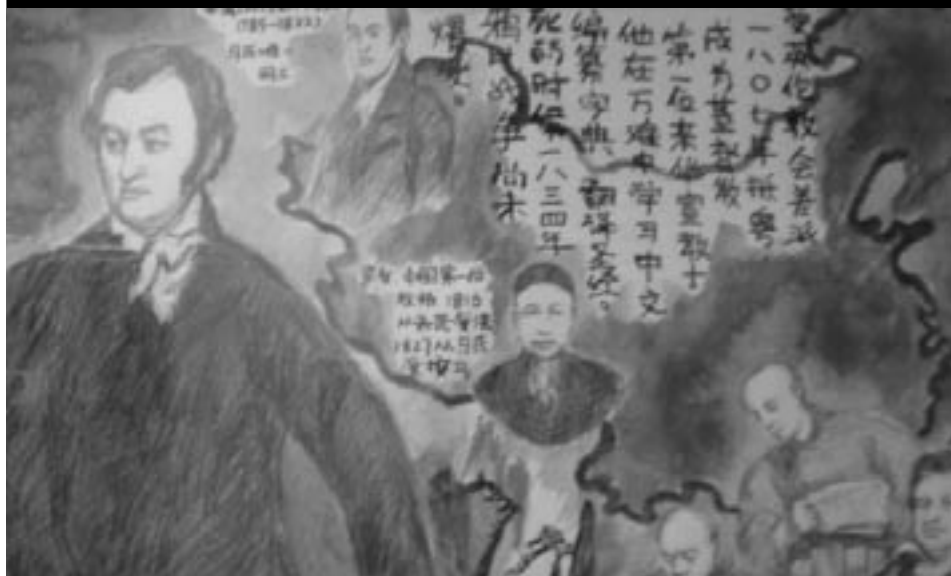 (1785-1822)
同工
受英伦教会差派
一八〇七年抵粤，
成为基督教
第一位来华宣教士
他在万难中学习中文
编纂字典、翻译圣经。
死的时候一八三四年
鸦片战争尚未
爆发。
中国第一位
牧师
从米怜受洗
1827从马氏